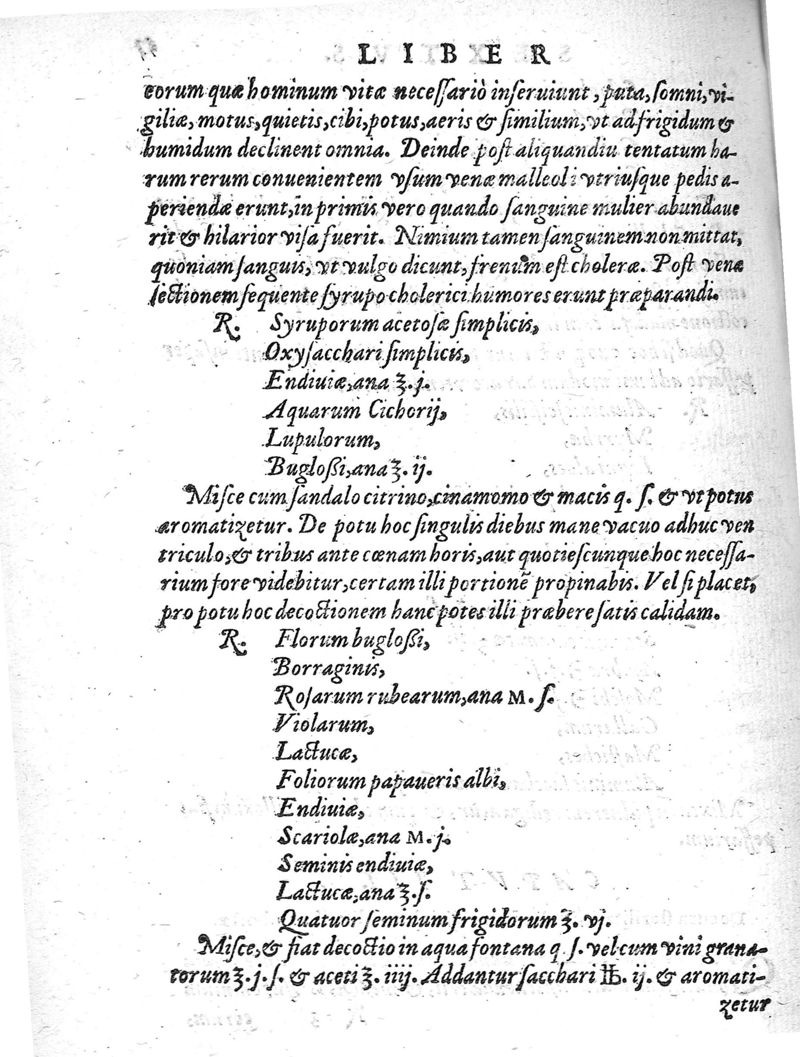 LIBER
eorum quæ hominum vitæ necessariò inseruiunt, puta, somni, vi-
giliæ, motus, quietis, cibi, potus, aeris & similium, vt ad frigidum &
humidum declinent omnia. Deinde post aliquandiu tentatum ha-
rum rerum conuenientem vsum venæ malleoli vtriusque pedis a-
periendæ erunt, in primis vero quando sanguine mulier abundaue
rit & hilarior visa fuerit. Nimium tamen sanguinem non mittat,
quoniam sanguis, vt vulgo dicunt, frenum est choleræ. Post venæ
sectionem sequente syrupo cholerici humores erunt præparandi.
R. Syruporum acetosæ simplicis,
Oxysacchari simplicis,
Endiuiæ, ana ℥. j.
Aquarum Cichorij,
Lupulorum,
Buglossi, ana ℥. ij.
Misce cum sandalo citrino, cinamomo & macis q. s. & vt potus
aromatizetur. De potu hoc singulis diebus mane vacuo adhuc ven
triculo, & tribus ante cœnam horis, aut quotiescunque hoc necessa-
rium fore videbitur, certam illi portionē propinabis. Vel si placet,
pro potu hoc decoctionem hanc potes illi præbere satis calidam.
R. Florum buglossi,
Borraginis,
Rosarum rubearum, ana M. s.
Violarum,
Lactucæ,
Foliorum papaueris albi,
Endiuiæ,
Scariolæ, ana M. j.
Seminis endiuiæ,
Lactucæ, ana ℥. s.
Quatuor seminum frigidorum ℥. vj.
Misce, & fiat decoctio in aqua fontana q. s. vel cum vini grana-
torum ℥. j. s. & aceti ℥. iiij. Addantur sacchari ℔. ij. & aromati-
zetur